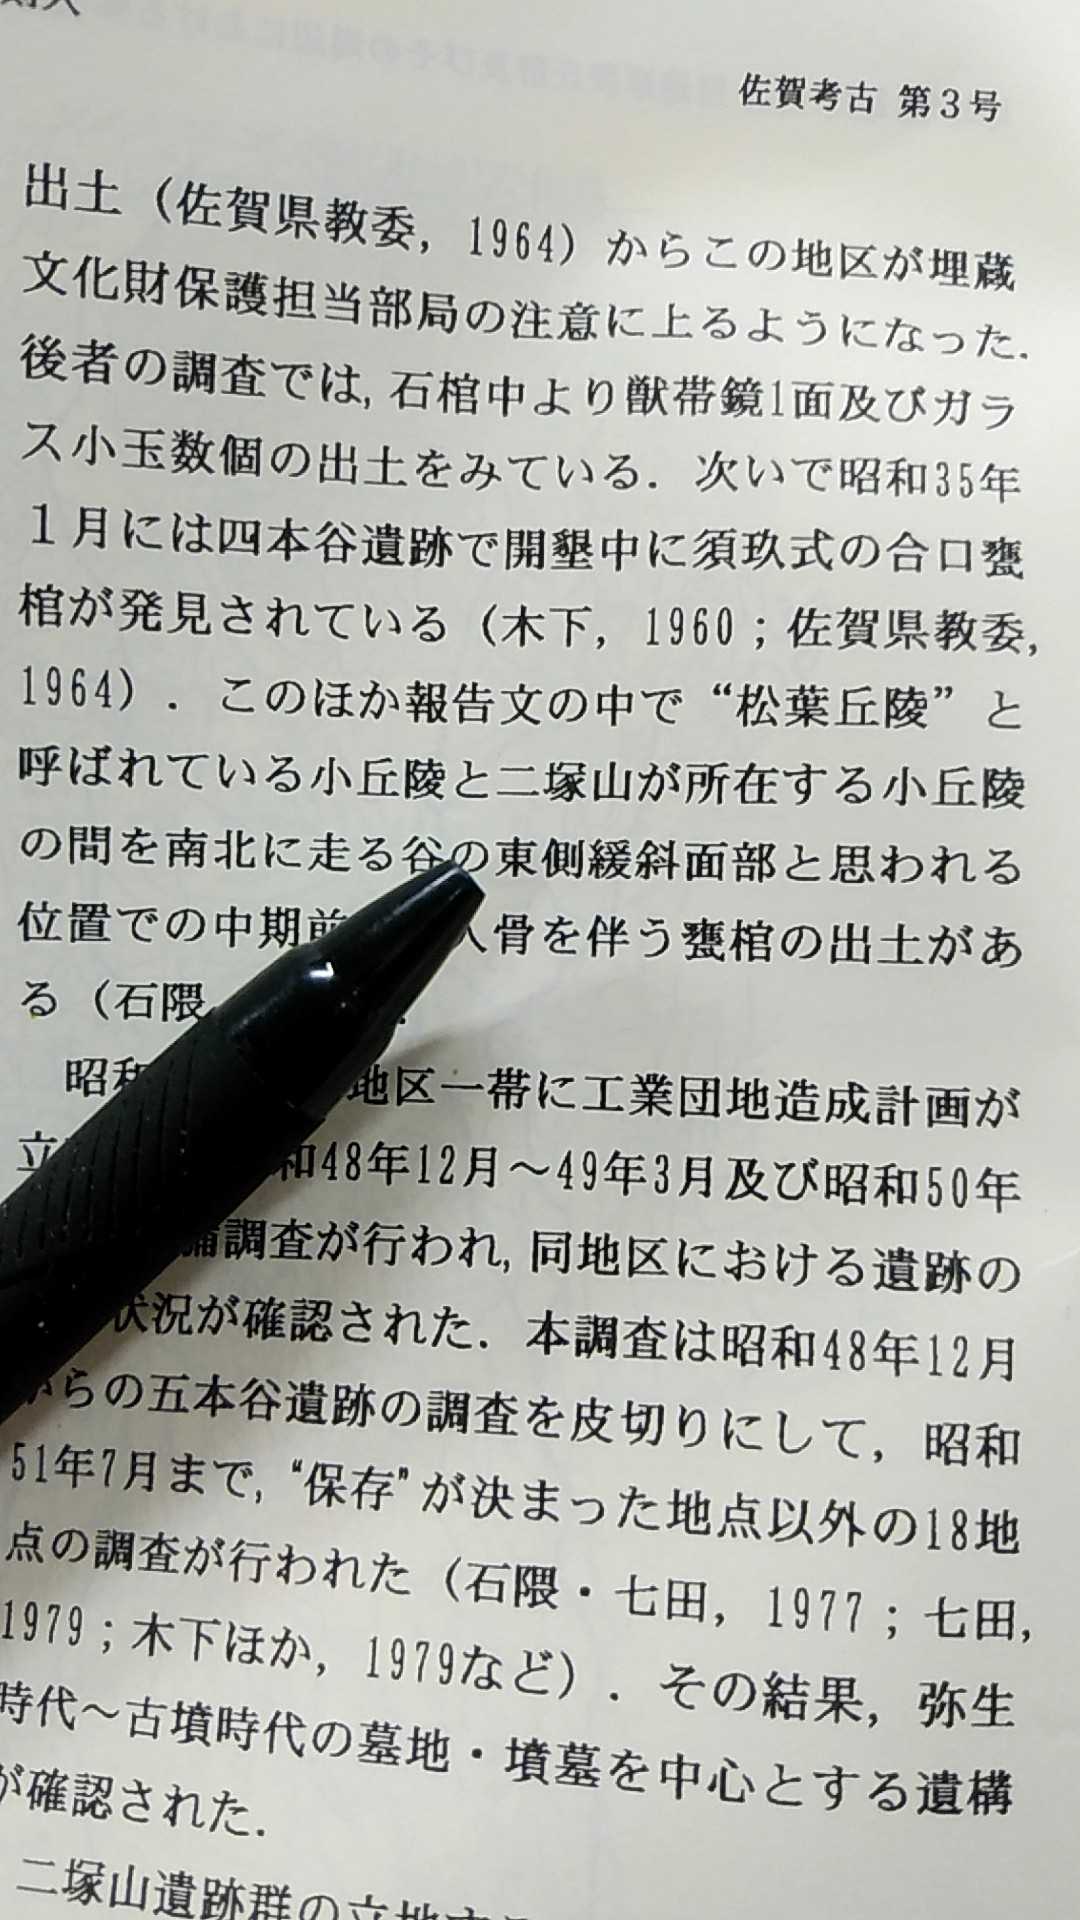 佐賀考古 第3号
出土（佐賀県教委，1964）からこの地区が埋蔵
文化財保護担当部局の注意に上るようになった．
後者の調査では，石棺中より獣帯鏡1面及びガラ
ス小玉数個の出土をみている．次いで昭和35年
１月には四本谷遺跡で開墾中に須玖式の合口甕
棺が発見されている（木下，1960；佐賀県教委，
1964）．このほか報告文の中で“松葉丘陵”と
呼ばれている小丘陵と二塚山が所在する小丘陵
の間を南北に走る谷の東側緩斜面部と思われる
位置での中期前 人骨を伴う甕棺の出土があ
る（石隈， ．
昭和 地区一帯に工業団地造成計画が
立 和48年12月～49年3月及び昭和50年
調査が行われ，同地区における遺跡の
状況が確認された．本調査は昭和48年12月
からの五本谷遺跡の調査を皮切りにして，昭和
51年7月まで，“保存”が決まった地点以外の18地
点の調査が行われた（石隈・七田，1977；七田，
1979；木下ほか，1979など）．その結果，弥生
時代～古墳時代の墓地・墳墓を中心とする遺構
が確認された．
二塚山遺跡群の立地